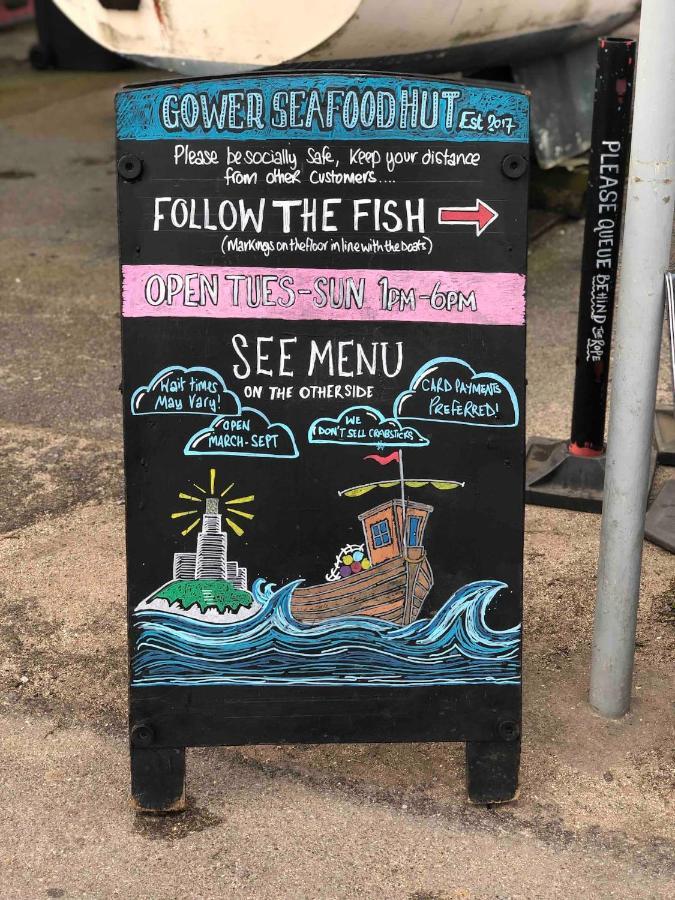 GOWER SEAFOOD HUT Est 2017
Please be socially safe, keep your distance
from other customers....
FOLLOW THE FISH
(Markings on the floor in line with the boats)
OPEN TUES-SUN 1PM-6PM
SEE MENU
ON THE OTHERSIDE
Wait times
May Vary!
CARD PAYMENTS
PREFERRED!
OPEN
MARCH-SEPT
WE
DON'T SELL CRABSTICKS
PLEASE QUEUE BEHIND THE ROPE